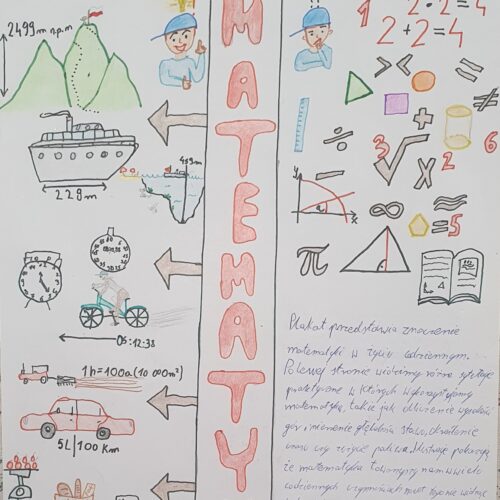 2499 m n.p.m
229m
459m
05:12:38
1h = 100a (10 000 m²)
5L/100 Km
MATEMATY
1
2·2=4
2+2=4
> <
=
≠
+
÷
3
√
2
6
x
−
a
x
∞
≈
=5
π
Plakat przedstawia znaczenie
matematyki w życiu codziennym.
Po lewej stronie widzimy różne sytuacje
praktyczne w których wykorzystujemy
matematykę, takie jak obliczenie wysokości
gór, mierzenie głębokości
czasu czy zużycie paliwa. pokazują
że matematyka towarzyszy nam w wielu
codziennych